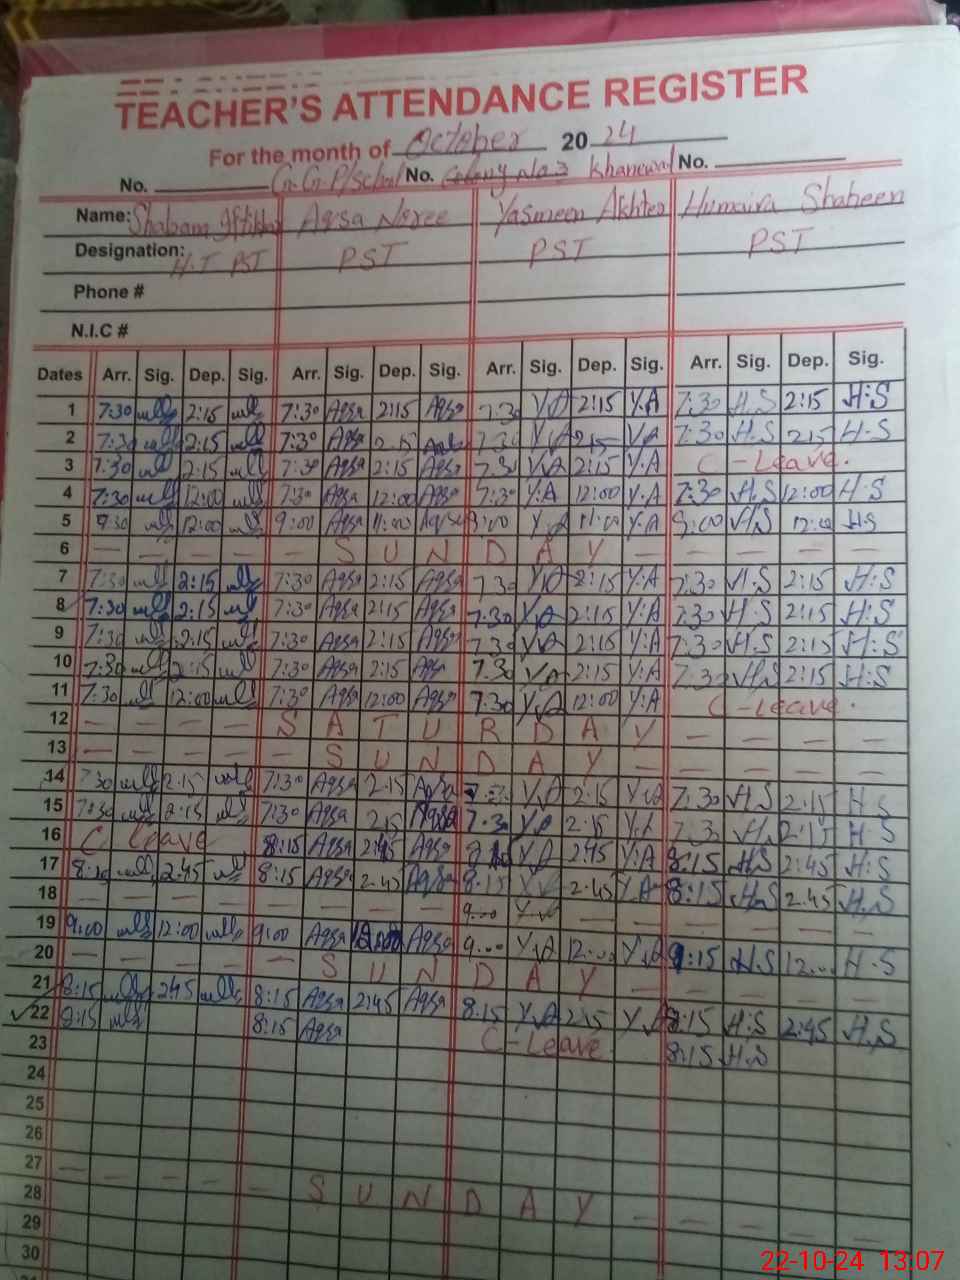 TEACHER'S ATTENDANCE REGISTER
For the month of October 2024
No. G.G.P/School No. Colony No.3 Khanewal No.
Name: Shabam Iftikhar Aqsa Noree Yasmeen Akhter Humaira Shaheen
Designation: H.T PST PST PST PST
Phone #
N.I.C #
Dates Arr. Sig. Dep. Sig. Arr. Sig. Dep. Sig. Arr. Sig. Dep. Sig. Arr. Sig. Dep. Sig.
1 7:30 2:15 7:30 Aqsa 2:15 Aqsa 7:30 Y.A 2:15 Y.A 7:30 H.S 2:15 H:S
2 7:30 2:15 7:30 Aqsa 2:15 7:30 Y.A 2:15 Y.A 7:30 H.S 2:15 H.S
3 7:30 2:15 7:30 Aqsa 2:15 Aqsa 7:30 Y.A 2:15 Y.A C-Leave.
4 7:30 12:00 7:30 Aqsa 12:00 Aqsa 7:30 Y.A 12:00 Y.A 7:30 H.S 12:00 H.S
5 9:30 12:00 9:00 Aqsa 11:00 Aqsa 9:00 Y.A 11:00 Y.A 9:00 H.S 12:00 H.S
6 — — — — — S U N D A Y — — — — —
7 7:30 2:15 7:30 Aqsa 2:15 Aqsa 7:30 Y.A 2:15 Y:A 7:30 H.S 2:15 H:S
8 7:30 2:15 7:30 Aqsa 2:15 Aqsa 7:30 Y.A 2:15 Y:A 7:30 H.S 2:15 H:S
9 7:30 2:15 7:30 Aqsa 2:15 Aqsa 7:30 Y.A 2:15 Y:A 7:30 H.S 2:15 H:S
10 7:30 2:15 7:30 Aqsa 2:15 Aqsa 7:30 Y.A 2:15 Y:A 7:30 H.S 2:15 H:S
11 7:30 12:00 7:30 Aqsa 12:00 Aqsa 7:30 Y.A 12:00 Y:A C-Leave.
12 — — — — S A T U R D A Y — — — —
13 — — — — — S U N D A Y — — — — —
14 7:30 2:15 7:30 Aqsa 2:15 Aqsa 7:30 Y.A 2:15 Y.A 7:30 H.S 2:15 H.S
15 7:30 2:15 7:30 Aqsa 2:15 Aqsa 7:30 Y.A 2:15 Y.A 7:30 H.S 2:15 H.S
16 C Leave 8:15 Aqsa 2:45 Aqsa Y.A 2:45 Y:A 8:15 H.S 2:45 H:S
17 8:15 2:45 8:15 Aqsa 2:45 Aqsa 8:15 Y.A 2:45 Y.A 8:15 H.S 2:45 H.S
18 — — — — — — — — 9:00 Y.A — — — — — —
19 9:00 12:00 9:00 Aqsa 12:00 Aqsa 9:00 Y.A 12:00 Y.A 9:15 H.S 12:00 H.S
20 — — — — — S U N D A Y — — — — —
21 8:15 2:45 8:15 Aqsa 2:45 Aqsa 8:15 Y.A 2:15 Y.A 8:15 H:S 2:45 H.S
22 8:15 8:15 Aqsa C-Leave 8:15 H.S
23
24
25
26
27 — — — — — S U N D A Y — — — — —
28
29
30
22-10-24 13:07